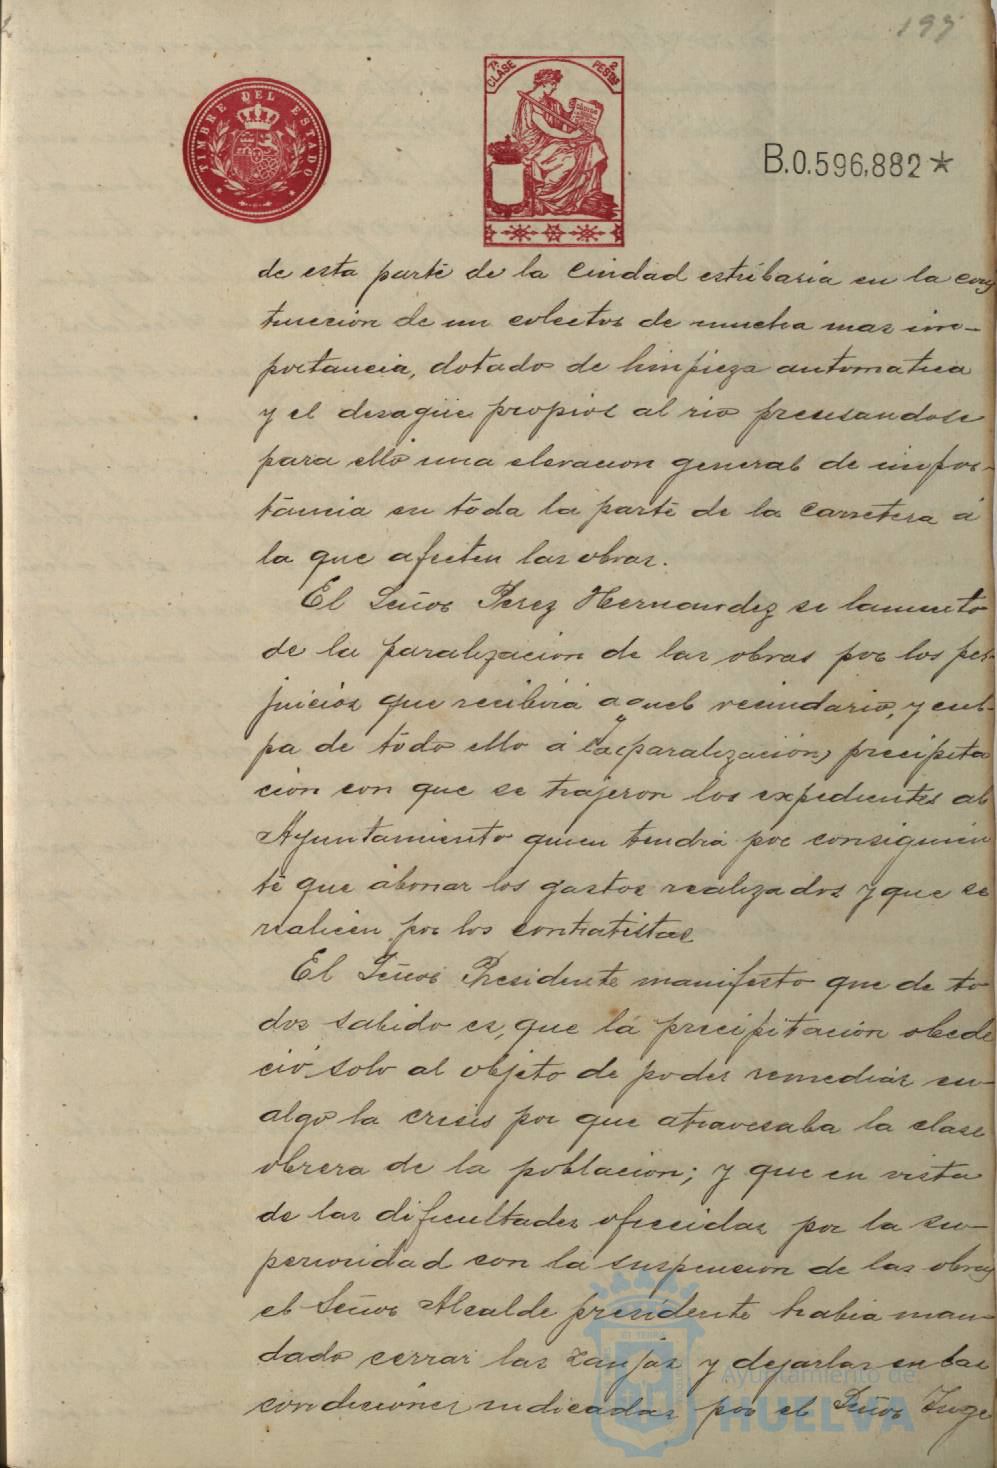 197
TIMBRE DEL ESTADO
7ª CLASE 2 PESTAS
B.0.596,882*
de esta parte de la Ciudad estribaria en la cons
trucción de un colector de mucha mas im-
portancia, dotado de limpieza automatica
y el desagüe propios al rio precisandose
para ello una elevacion general de impor-
tancia en toda la parte de la carretera á
la que afecten las obras.
El Señor Perez Hernandez se lamentó
de la paralización de las obras por los per-
juicios que recibirá aquel vecindario, y cul-
pa de todo ello á la (paralización) precipita
ción con que se trajeron los expedientes al
Ayuntamiento quien tendrá por consiguien
te que abonar los gastos realizados y que se
realicen por los contratistas
El Señor Presidente manifestó que de to
dos sabido es, que la precipitación obede
ció solo al objeto de poder remediar en
algo la crisis por que atravesaba la clase
obrera de la poblacion; y que en vista
de las dificultades ofrecidas por la su-
perioridad con la suspencion de las obras
el Señor Alcalde presidente habia man-
dado cerrar las zanjas y dejarlas en las
condiciones indicadas por el Señor Inge
Ayuntamiento de
HUELVA